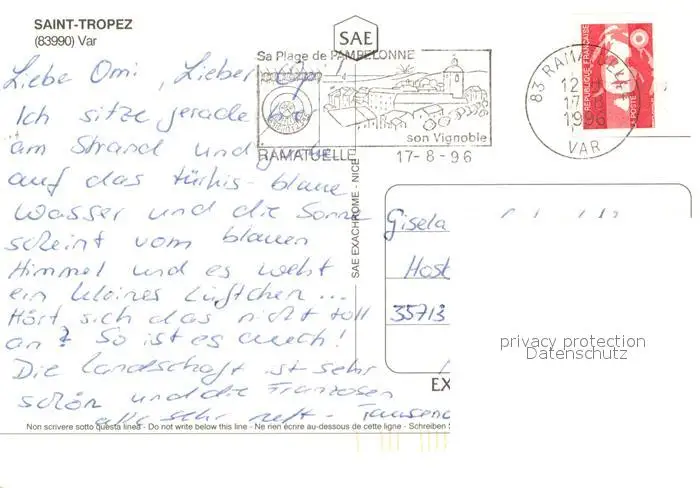 SAINT-TROPEZ
(83990) Var
SAE
Sa Plage de PAMPELONNE
son Vignoble
RAMATUELLE
17-8-96
83 RAMATUELLE
12 H
17-8
1996
VAR
REPUBLIQUE FRANÇAISE
LA POSTE
Liebe Omi, Lieber
Ich sitze gerade
am Strand und
auf das türkis-blaue
Wasser und die Sonne
scheint vom blauen
Himmel und es weht
ein kleines Lüftchen...
Hört sich das nicht toll
an? So ist es auch!
Die Landschaft ist sehr
schön und die Franzosen
alle sehr nett - Tausend
SAE EXACHROME - NICE
Gisela
35713
privacy protection
Datenschutz
EX
Non scrivere sotto questa linea - Do not write below this line - Ne rien écrire au-dessous de cette ligne - Schreiben S